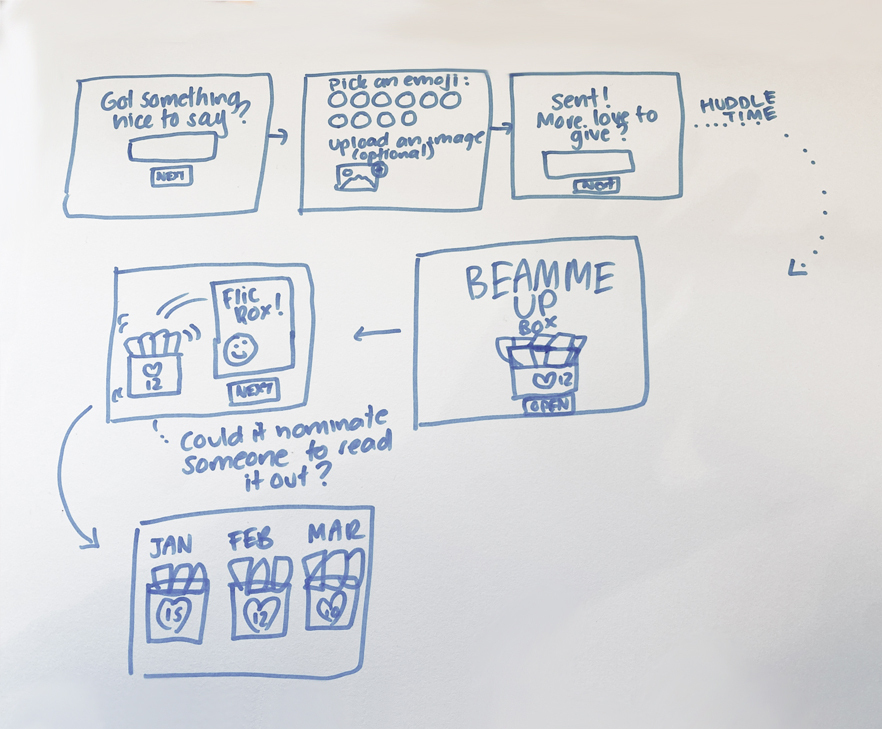 Got something
nice to say?
NEXT
Pick an emoji:
upload an image
(optional)
Sent!
More love to
give?
NEXT
HUDDLE
TIME
BEAM ME
UP
BOX
12
OPEN
Flic
Rox!
12
NEXT
Could it nominate
someone to read
it out?
JAN FEB MAR
15 12